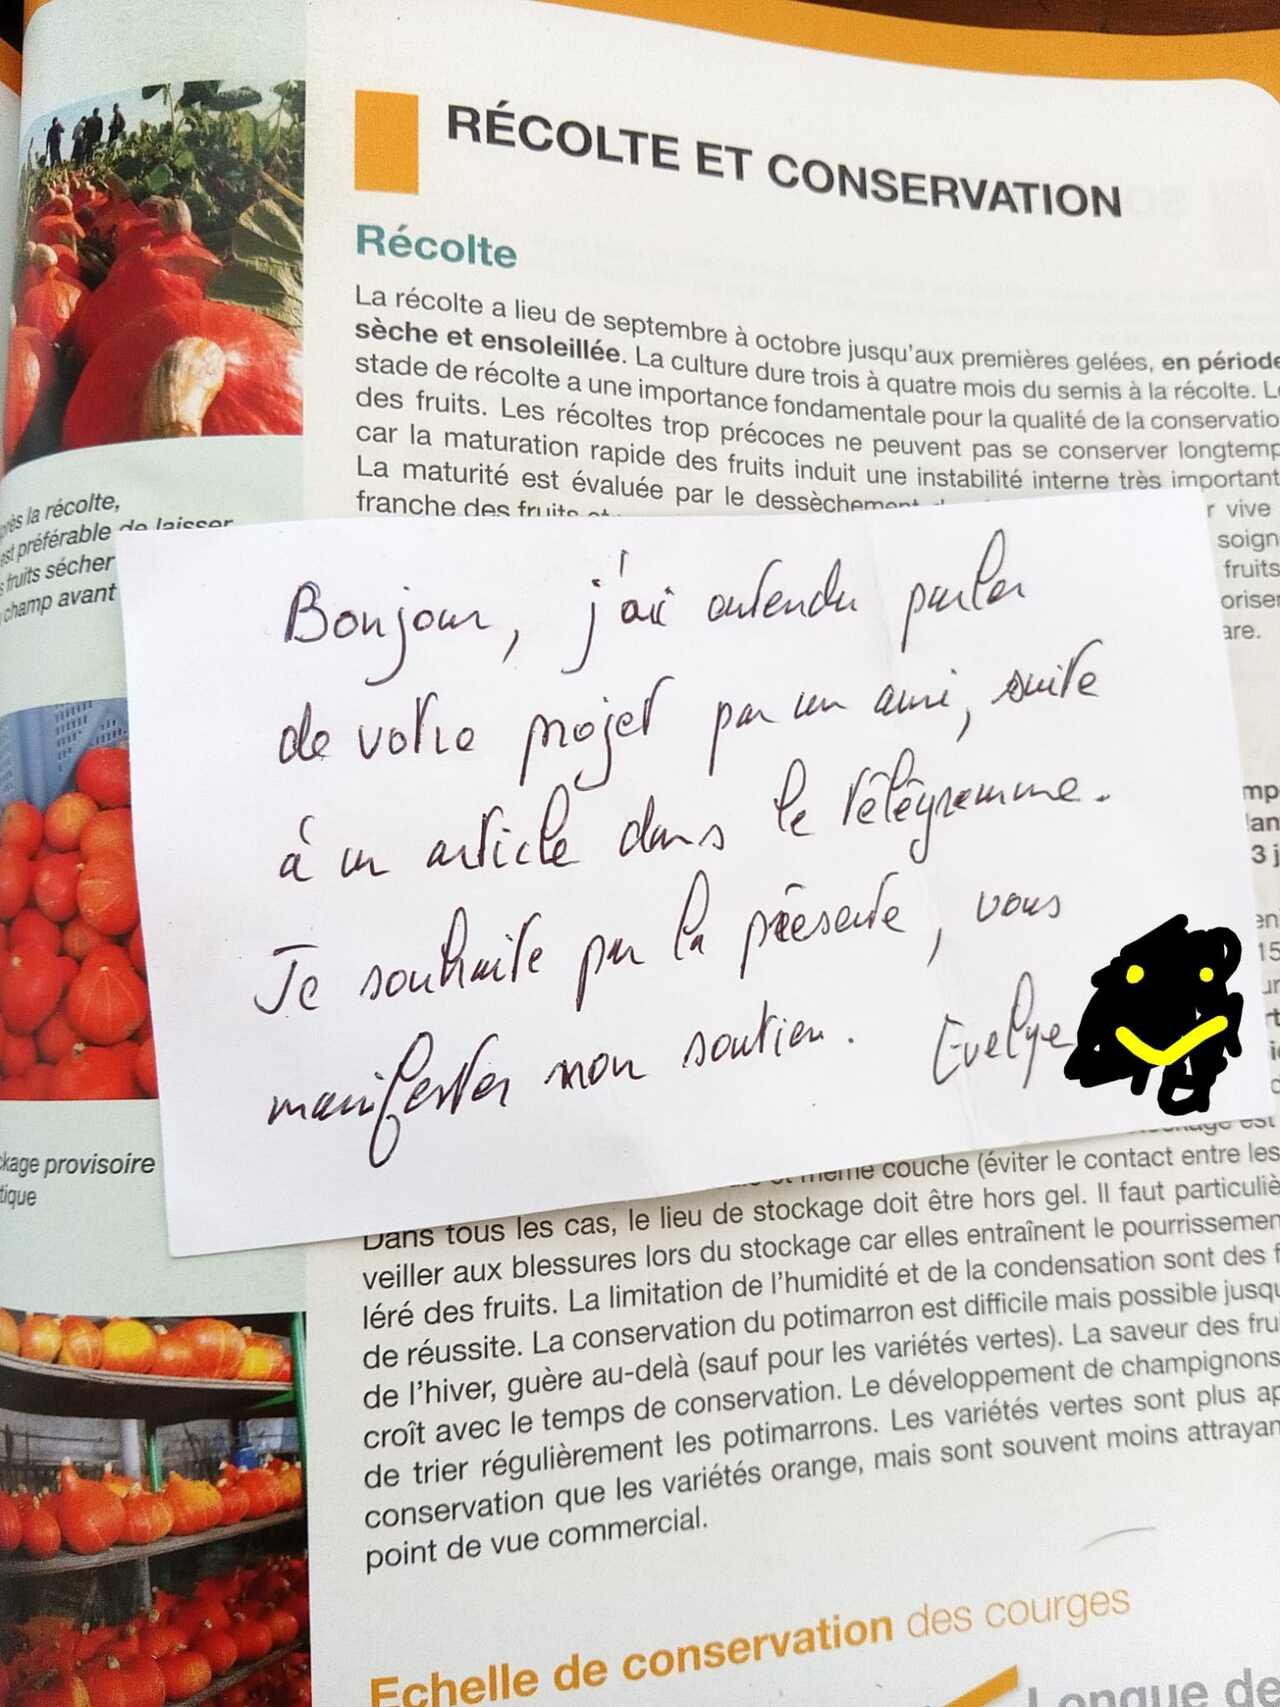 RÉCOLTE ET CONSERVATION
Récolte
La récolte a lieu de septembre à octobre jusqu'aux premières gelées, en période
sèche et ensoleillée. La culture dure trois à quatre mois du semis à la récolte. L
stade de récolte a une importance fondamentale pour la qualité de la conservatio
des fruits. Les récoltes trop précoces ne peuvent pas se conserver longtemp
car la maturation rapide des fruits induit une instabilité interne très important
La maturité est évaluée par le dessèchement
franche des fruits et
r vive
soign
fruits
oriser
are.
près la récolte,
est préférable de laisser
s fruits sécher
champ avant
Bonjour, j'ai entendu parler
de votre projet par un ami, suite
à un article dans le télégramme.
Je souhaite par la présente, vous
manifester mon soutien. Evelyne
mp
lan
3 j
en
15
ur
kage provisoire
tique
stockage est
et même couche (éviter le contact entre les
Dans tous les cas, le lieu de stockage doit être hors gel. Il faut particuliè
veiller aux blessures lors du stockage car elles entraînent le pourrissemen
léré des fruits. La limitation de l'humidité et de la condensation sont des f
de réussite. La conservation du potimarron est difficile mais possible jusqu
de l'hiver, guère au-delà (sauf pour les variétés vertes). La saveur des fru
croît avec le temps de conservation. Le développement de champignons
de trier régulièrement les potimarrons. Les variétés vertes sont plus ap
conservation que les variétés orange, mais sont souvent moins attrayan
point de vue commercial.
Echelle de conservation des courges
Longue de